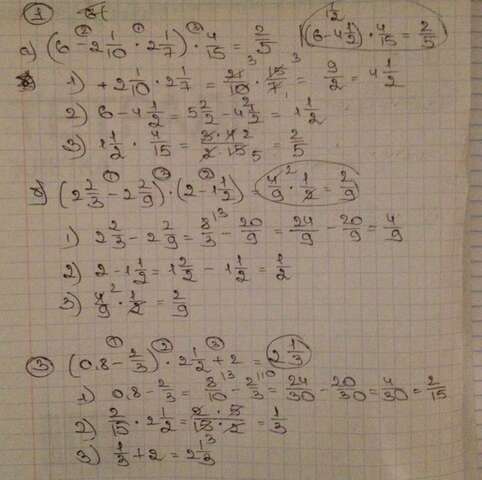 1
а) (6 - 2 1/10 · 2 1/7) · 4/15 = 2/5
(6 - 4 1/2) · 4/15 = 2/5
1) 2 1/10 · 2 1/7 = 21/10 · 15/7 = 9/2 = 4 1/2
2) 6 - 4 1/2 = 5 2/2 - 4 1/2 = 1 1/2
3) 1 1/2 · 4/15 = 3·4/2·15 = 2/5
б) (2 2/3 - 2 2/9) · (2 - 1 1/2) = 4/9 · 1/2 = 2/9
1) 2 2/3 - 2 2/9 = 8/3 - 20/9 = 24/9 - 20/9 = 4/9
2) 2 - 1 1/2 = 1 2/2 - 1 1/2 = 1/2
3) 4/9 · 1/2 = 2/9
3 (0,8 - 2/3) · 2 1/2 + 2 = 2 1/3
1) 0,8 - 2/3 = 8/10 - 2/3 = 24/30 - 20/30 = 4/30 = 2/15
2) 2/15 · 2 1/2 = 2·5/15·2 = 1/3
3) 1/3 + 2 = 2 1/3